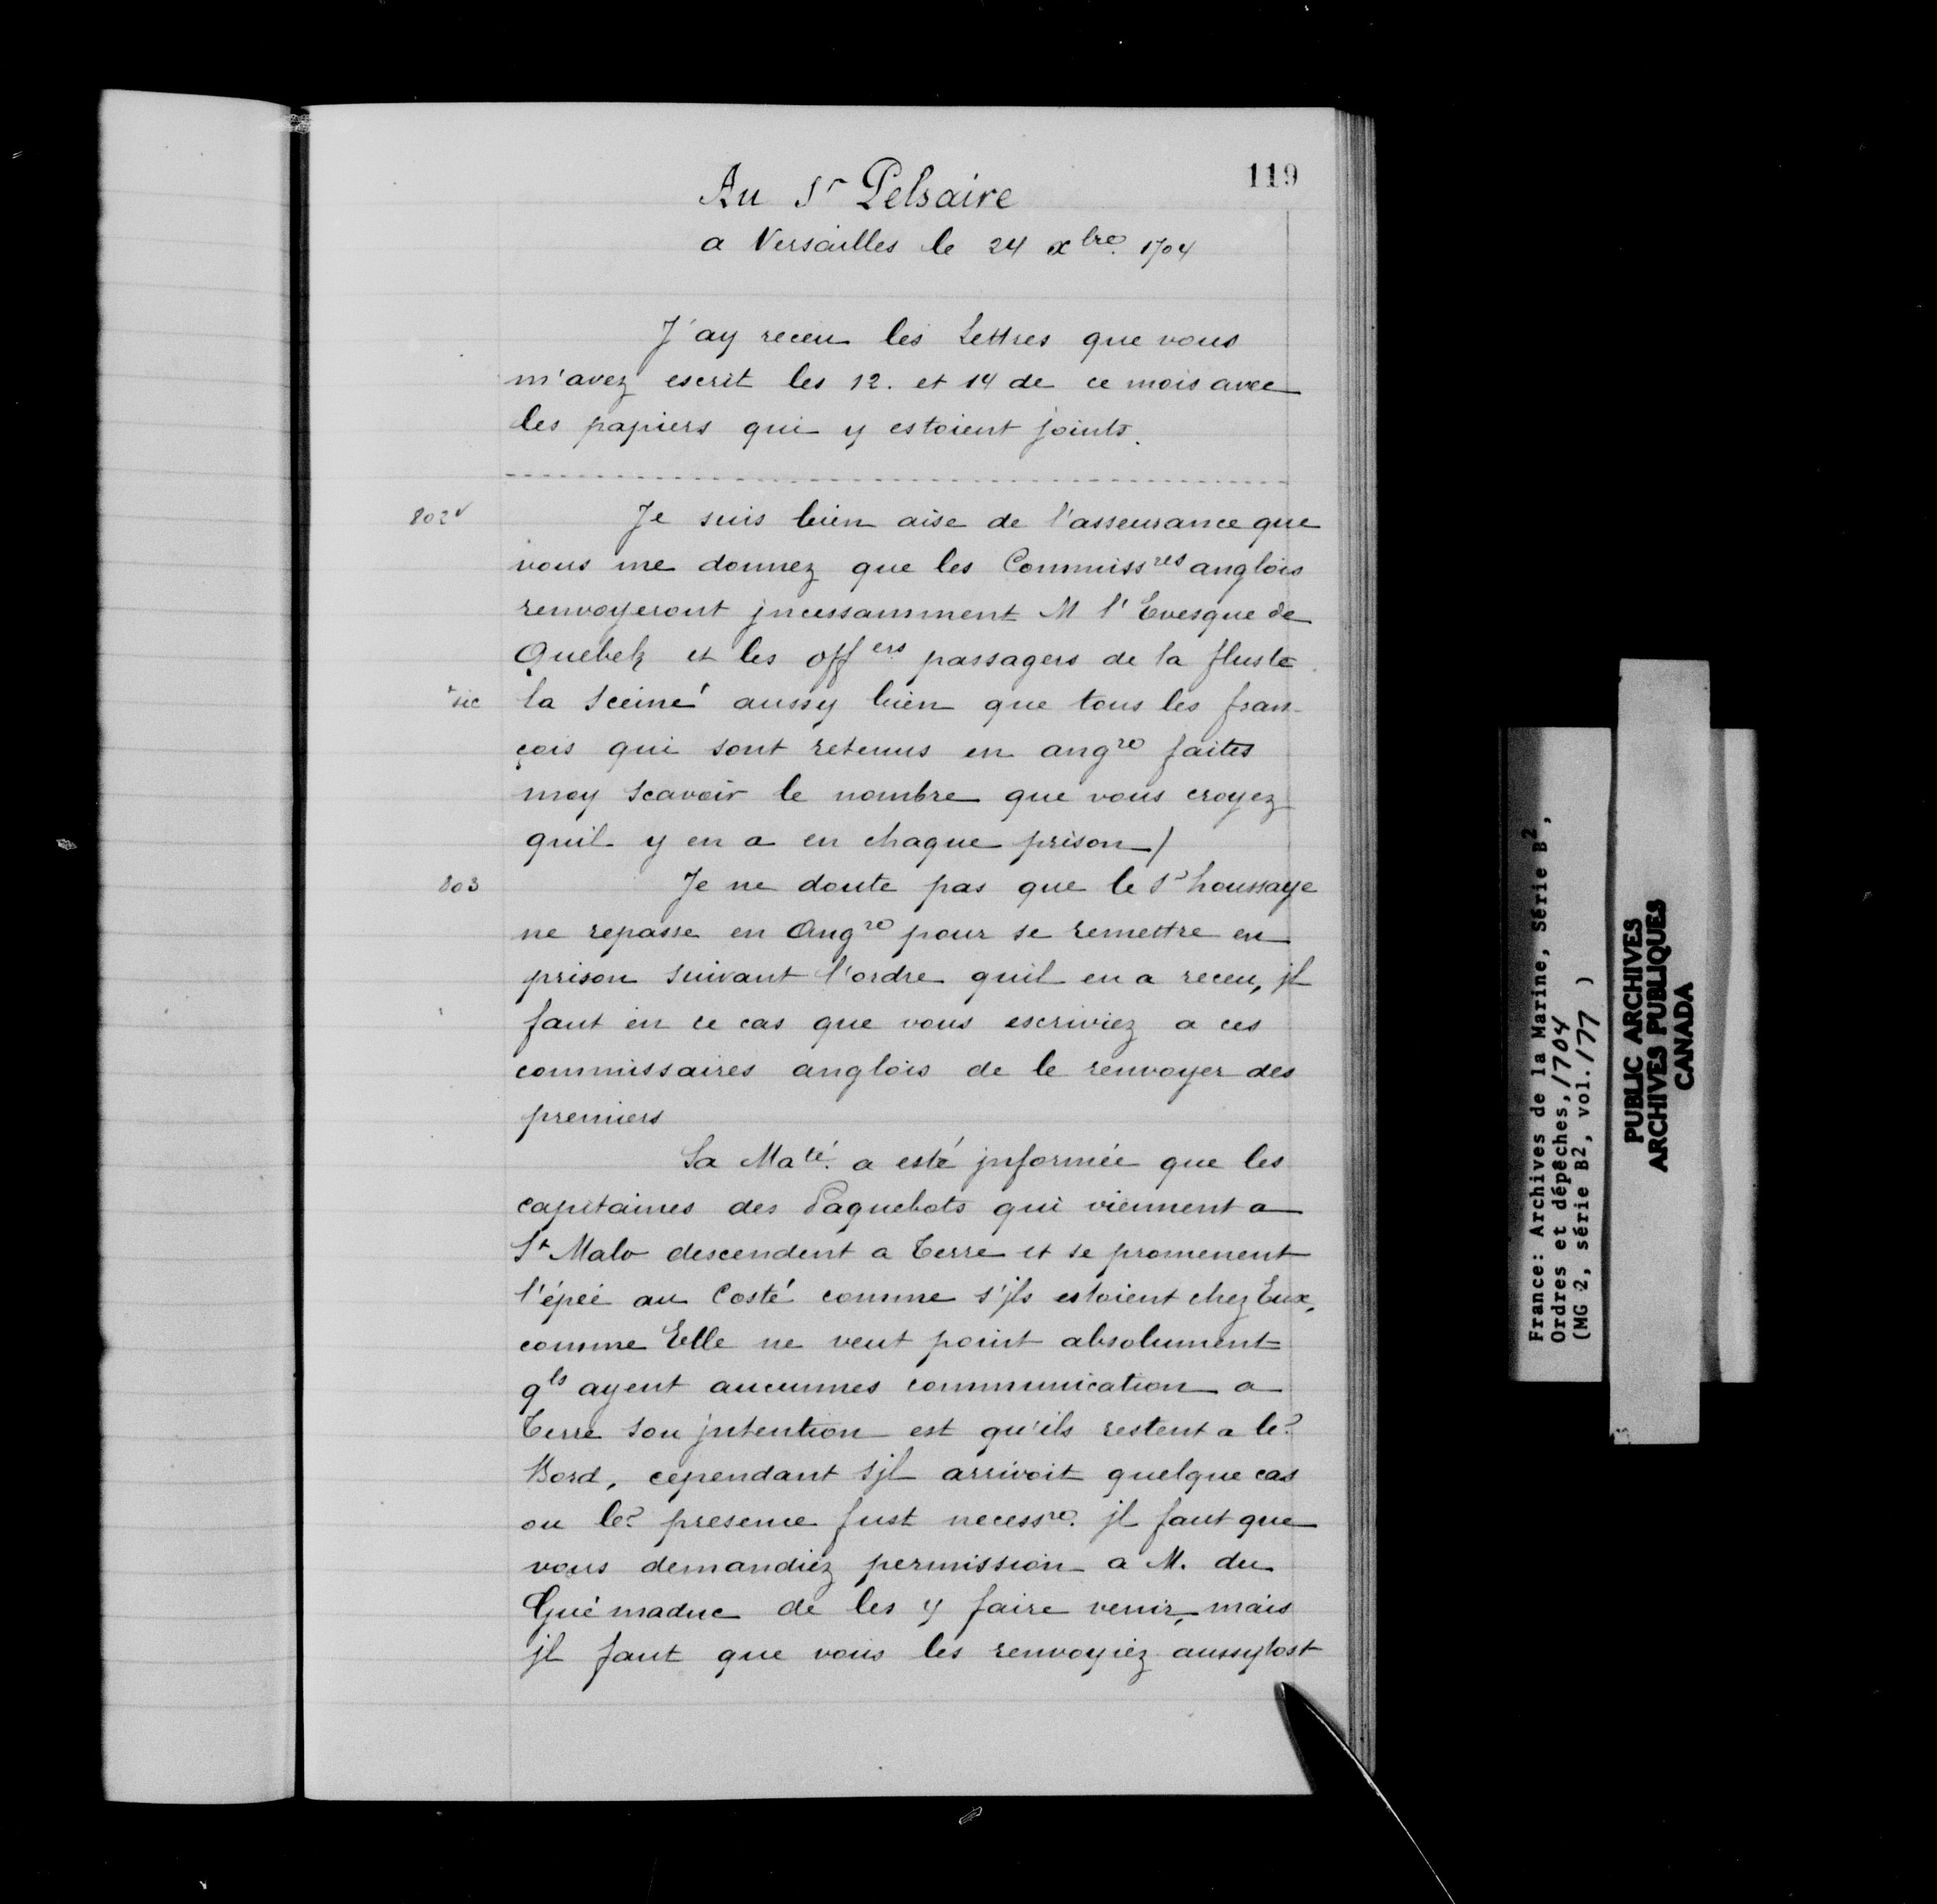 119
Au Sr Pelsaire
a Versailles le 24 xbre. 1704
J'ay receu les Lettres que vous
m'avez escrit les 12. et 14 de ce mois avec
les papiers qui y estoient joints.
802v
Je suis bien aise de l'asseurance que
vous me donnez que les Commissres anglois
renvoyeront jncessamment M l'Evesque de
Quebek et les offers passagers de la fluste
sic
la Sceine aussy bien que tous les fran-
çois qui sont retenus en angre faites
moy scavoir le nombre que vous croyez
quil y en a en chaque prison/
803
Je ne doute pas que le Sr houssaye
ne repasse en Angre pour se remettre en
prison suivant l'ordre quil en a receu, jl
faut en ce cas que vous escriviez a ces
commissaires anglois de le renvoyer des
premiers
Sa Maté. a esté jnformée que les
capitaines des Paquebots qui viennent a
St Malo descendent a terre et se promenent
l'épée au Costé comme s'jls estoient chez Eux,
comme Elle ne veut point absolument
qls ayent aucunnes communication a
terre son jntention est qu'ils restent a ler
Bord, cependant sjl arrivoit quelque cas
ou ler presence fust necessre. jl faut que
vous demandiez permission a M. du
Guémaduc de les y faire venir, mais
jl faut que vous les renvoyiez aussytost
France: Archives de la Marine, Série B2,
Ordres et dépêches, 1704
(MG 2, série B2, vol. 177 )
PUBLIC ARCHIVES
ARCHIVES PUBLIQUES
CANADA